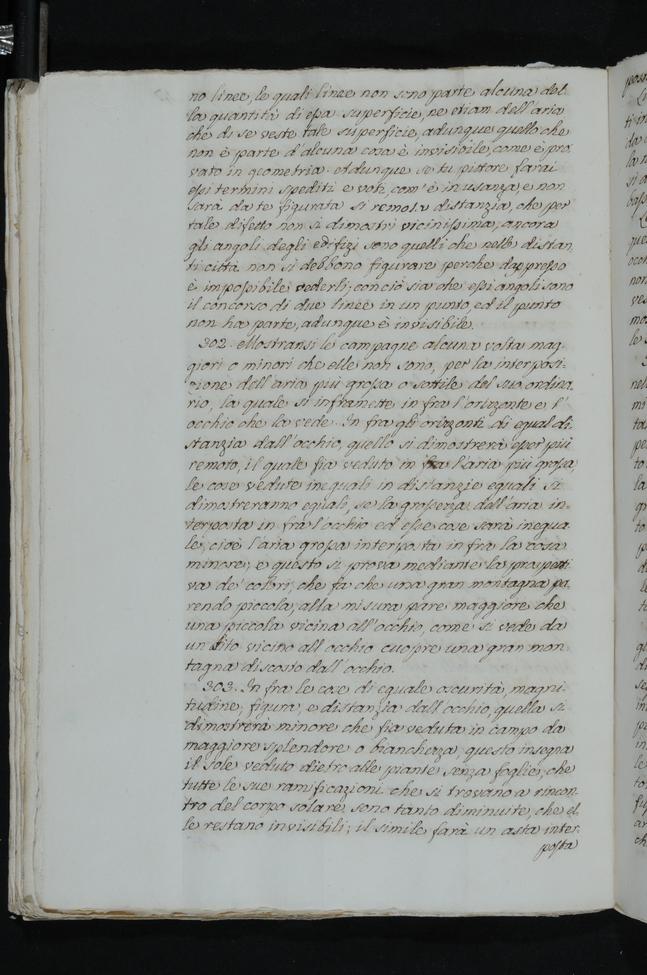 no linee, le quali linee non sono parte alcuna del-
la quantità di essa superficie, ne etiam dell'aria
che di se veste tale superficie, adunque quello che
non è parte d'alcuna cosa è invisibile, come è pro
vato in geometria. Adunque se tu pittore farai
essi termini spediti e noti, com'è in usanza, e non
sarà da te figurata si remota distanzia, che per
tale difetto non si dimostri vicinissima, ancora
gli angoli degli edifizi sono quelli che nelle distan
ti città non si debbono figurare perche dappresso
è impossibile vederli; conciò sia che essi angoli sono
il concorso di due linee in un punto, ed il punto
non ha parte, adunque è invisibile.
302. Mostransi le campagne alcuna volta mag-
giori o minori che elle non sono, per la interposi-
zione dell'aria più grossa o sottile del suo ordina
rio, la quale si inframette in fra l'orizzonte e l'
occhio che la vede. In fra gli orizzonti di equal di-
stanzia dall'occhio, quello si dimostrerà esser più
remoto, il quale fia veduto in fra l'aria più grossa
le cose vedute inequali in distanzie equali si
dimostreranno equali, se la grossezza dell'aria in-
terposta in fra l'occhio ed esse cose sarà inequa
le, cioè l'aria grossa interposta in fra la cosa
minore; e questo si prova mediante la prospetti
va de' colori, che fa che una gran montagna pa
rendo piccola, alla misura pare maggiore che
una piccola vicina all'occhio, come si vede da
un dito vicino all'occhio cuopre una gran mon
tagna discosto dall'occhio.
303. In fra le cose di equale oscurità, magni-
tudine, figura, e distanzia dall'occhio, quella si
dimostrerà minore che fia veduta in campo da
maggiore splendore o bianchezza, questo insegna
il sole veduto dietro alle piante senza foglie; che
tutte le sue ramificazioni che si trovano a rincon-
tro del corpo solare, sono tanto diminuite, che el-
le restano invisibili; il simile farà un asta inter-
posta